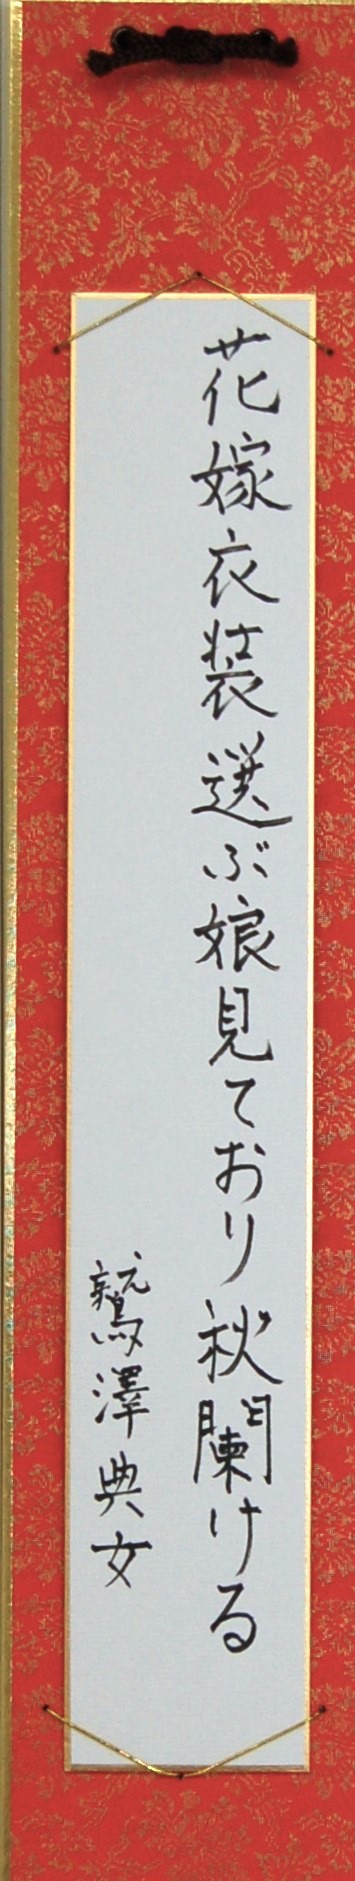 花嫁衣装選ぶ娘見ており秋闌ける
鷲澤典女